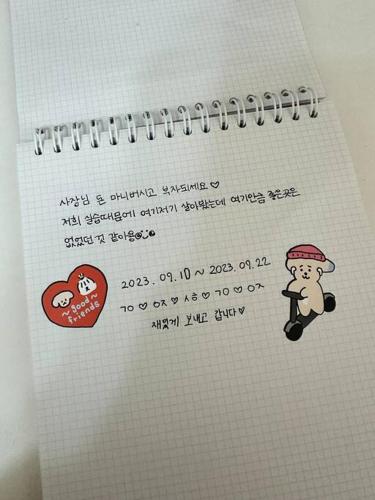 사장님 돈 마니버시고 부자되세요♡
저희 실습때문에 여기저기 살아봤는데 여기만큼 좋은곳은
없었던 것 같아용
2023.09.10 ~ 2023.09.22
ㄱㅇ ♡ ㅇㅈ ♡ ㅅㅎ ♡ ㄱㅇ ♡ ㅇㅈ
재밌게 보내고 갑니다♡
~good~
friends